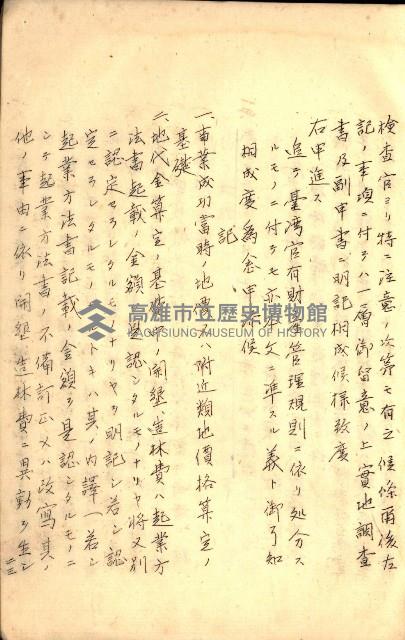 檢査官ヨリ特ニ注意ノ次第モ有之候條爾後左
記ノ事項ニ付テハ一層御留意ノ上實地調査
書及副申書ニ明記相成候樣致度
右申進ス
追テ臺灣官有財産管理規則ニ依リ処分ス
ルモノニ付テモ亦本文ニ準スル義ト御了知
相成度為念申添候
記
一、事業成功當時ノ地價又ハ附近類地價格算定ノ
基礎
二、地代金算定ノ基礎中ノ開墾、造林費ハ起業方
法書起載ノ金額ヲ是認シタルモノナリヤ將又別
ニ認定セラレタルモノナリヤヲ明記シ若シ認
定セラレタルモノナルトキハ其ノ内譯(若シ
起業方法書記載ノ金額ヲ是認シタルモノニ
シテ起業方法書ノ不備訂正又ハ改寫其ノ
他ノ事由ニ依リ開墾、造林費ニ異動ヲ生シ
高雄市立歷史博物館
KAOHSIUNG MUSEUM OF HISTORY